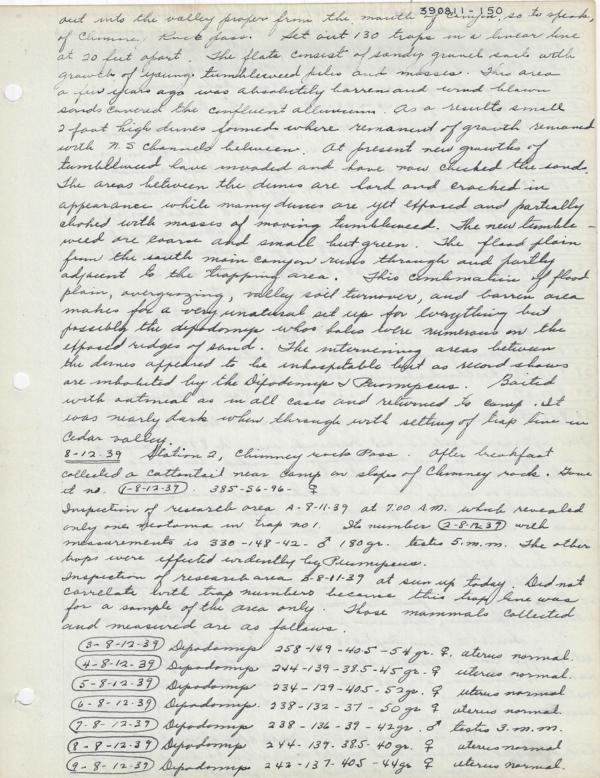 390811-150
out into the valley proper from the mouth of canyon, so to speak,
of Chimney Rock pass. Set out 130 traps in a linear line
at 20 feet apart. The flats consist of sandy gravel soils with
growths of young tumbleweed piles and masses. This area
a few years ago was absolutely barren and wind blown
sands covered the confluent alluvium. As a results small
2 foot high dunes formed where remanent of growth remained
with N.S channels between. At present new growths of
tumbleweed have invaded and have now checked the sands.
The areas between the dunes are hard and cracked in
appearance while many dunes are yet exposed and partially
choked with masses of moving tumbleweed. The new tumble-
weed are coarse and small but green. The flood plain
from the south main canyon runs through and partly
adjacent to the trapping area. This combination of flood
plain, overgrazing, valley soil turnover, and barren area
makes for a very unatural set up for everything but
possibly the dipodomys whos holes were numerous on the
exposed ridges of sand. The intervening areas between
the dunes appeared to be inhospitable but as record shows
are inhabited by the Dipodomys & Peromyscus. Baited
with oatmeal as in all cases and returned to camp. It
was nearly dark when through with setting of trap line in
Cedar valley.
8-12-39 Station 2, Chimney rock Pass. After breakfast
collected a cottontail near camp on slopes of Chimney rock. Gave
it no. 1-8-12-39. 385-56-96- ♀
Inspection of research area A-8-11-39 at 7:00 A.M. which revealed
only one neotoma in trap no 1. Its number 2-8-12-39 with
measurements is 330-148-42- ♂ 180gr. testis 5.m.m. The other
traps were effected evidently by Peromyscus.
Inspection of research area B-8-11-39 at sun up today. Did not
correlate with trap numbers because this trap line was
for a sample of the area only. Those mammals collected
and measured are as follows.
3-8-12-39 Dipodomys 258-149-40.5-54gr. ♀. uterus normal.
4-8-12-39 Dipodomys 244-139-38.5-45gr. ♀ uterus normal.
5-8-12-39 Dipodomys 234-129-40.5-52gr. ♀ uterus normal
6-8-12-39 Dipodomys 238-132-37-50gr ♀ uterus normal
7-8-12-39 Dipodomys 238-136-39-42gr. ♂ testis 3.m.m.
8-8-12-39 Dipodomys 244-139-38.5-40gr. ♀ uterus normal
9-8-12-39 Dipodomys 242-137-40.5-44gr ♀ uterus normal.